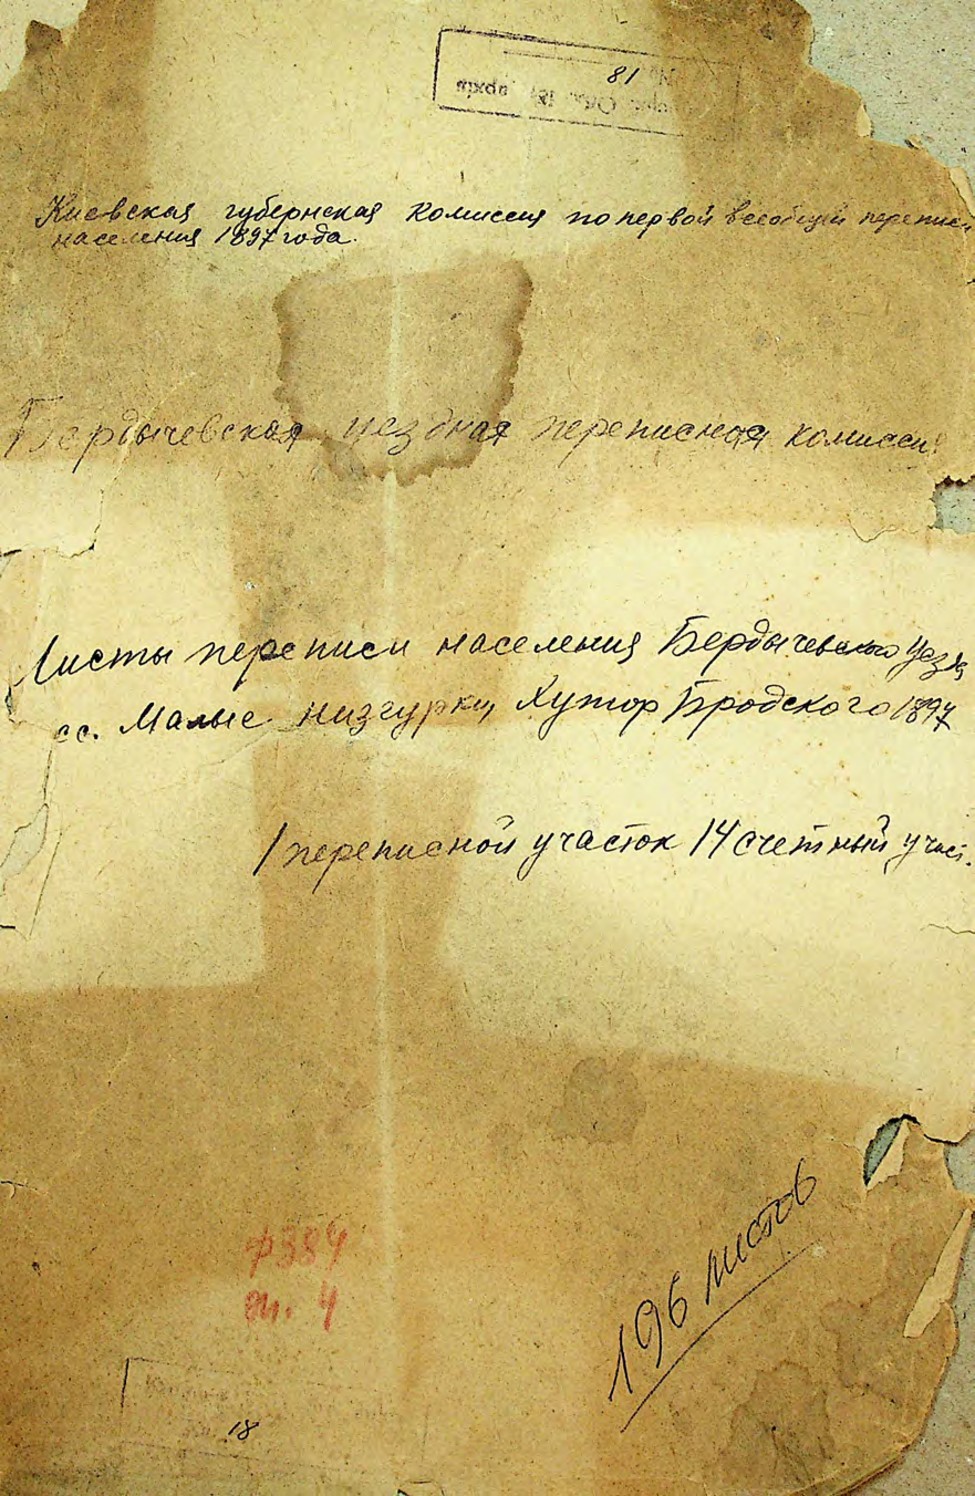 81
архів
Киевская губернская комиссия по первой всеобщей переписи
населения 1897 года.
Бердычевская уездная переписная комиссия
Листы переписи населения Бердычевского уезда
сс. Малые низгурки, Хутор Бродского 1897
1 переписной участок 14 счетный участ.
196 листов
ф384
оп. 4
18